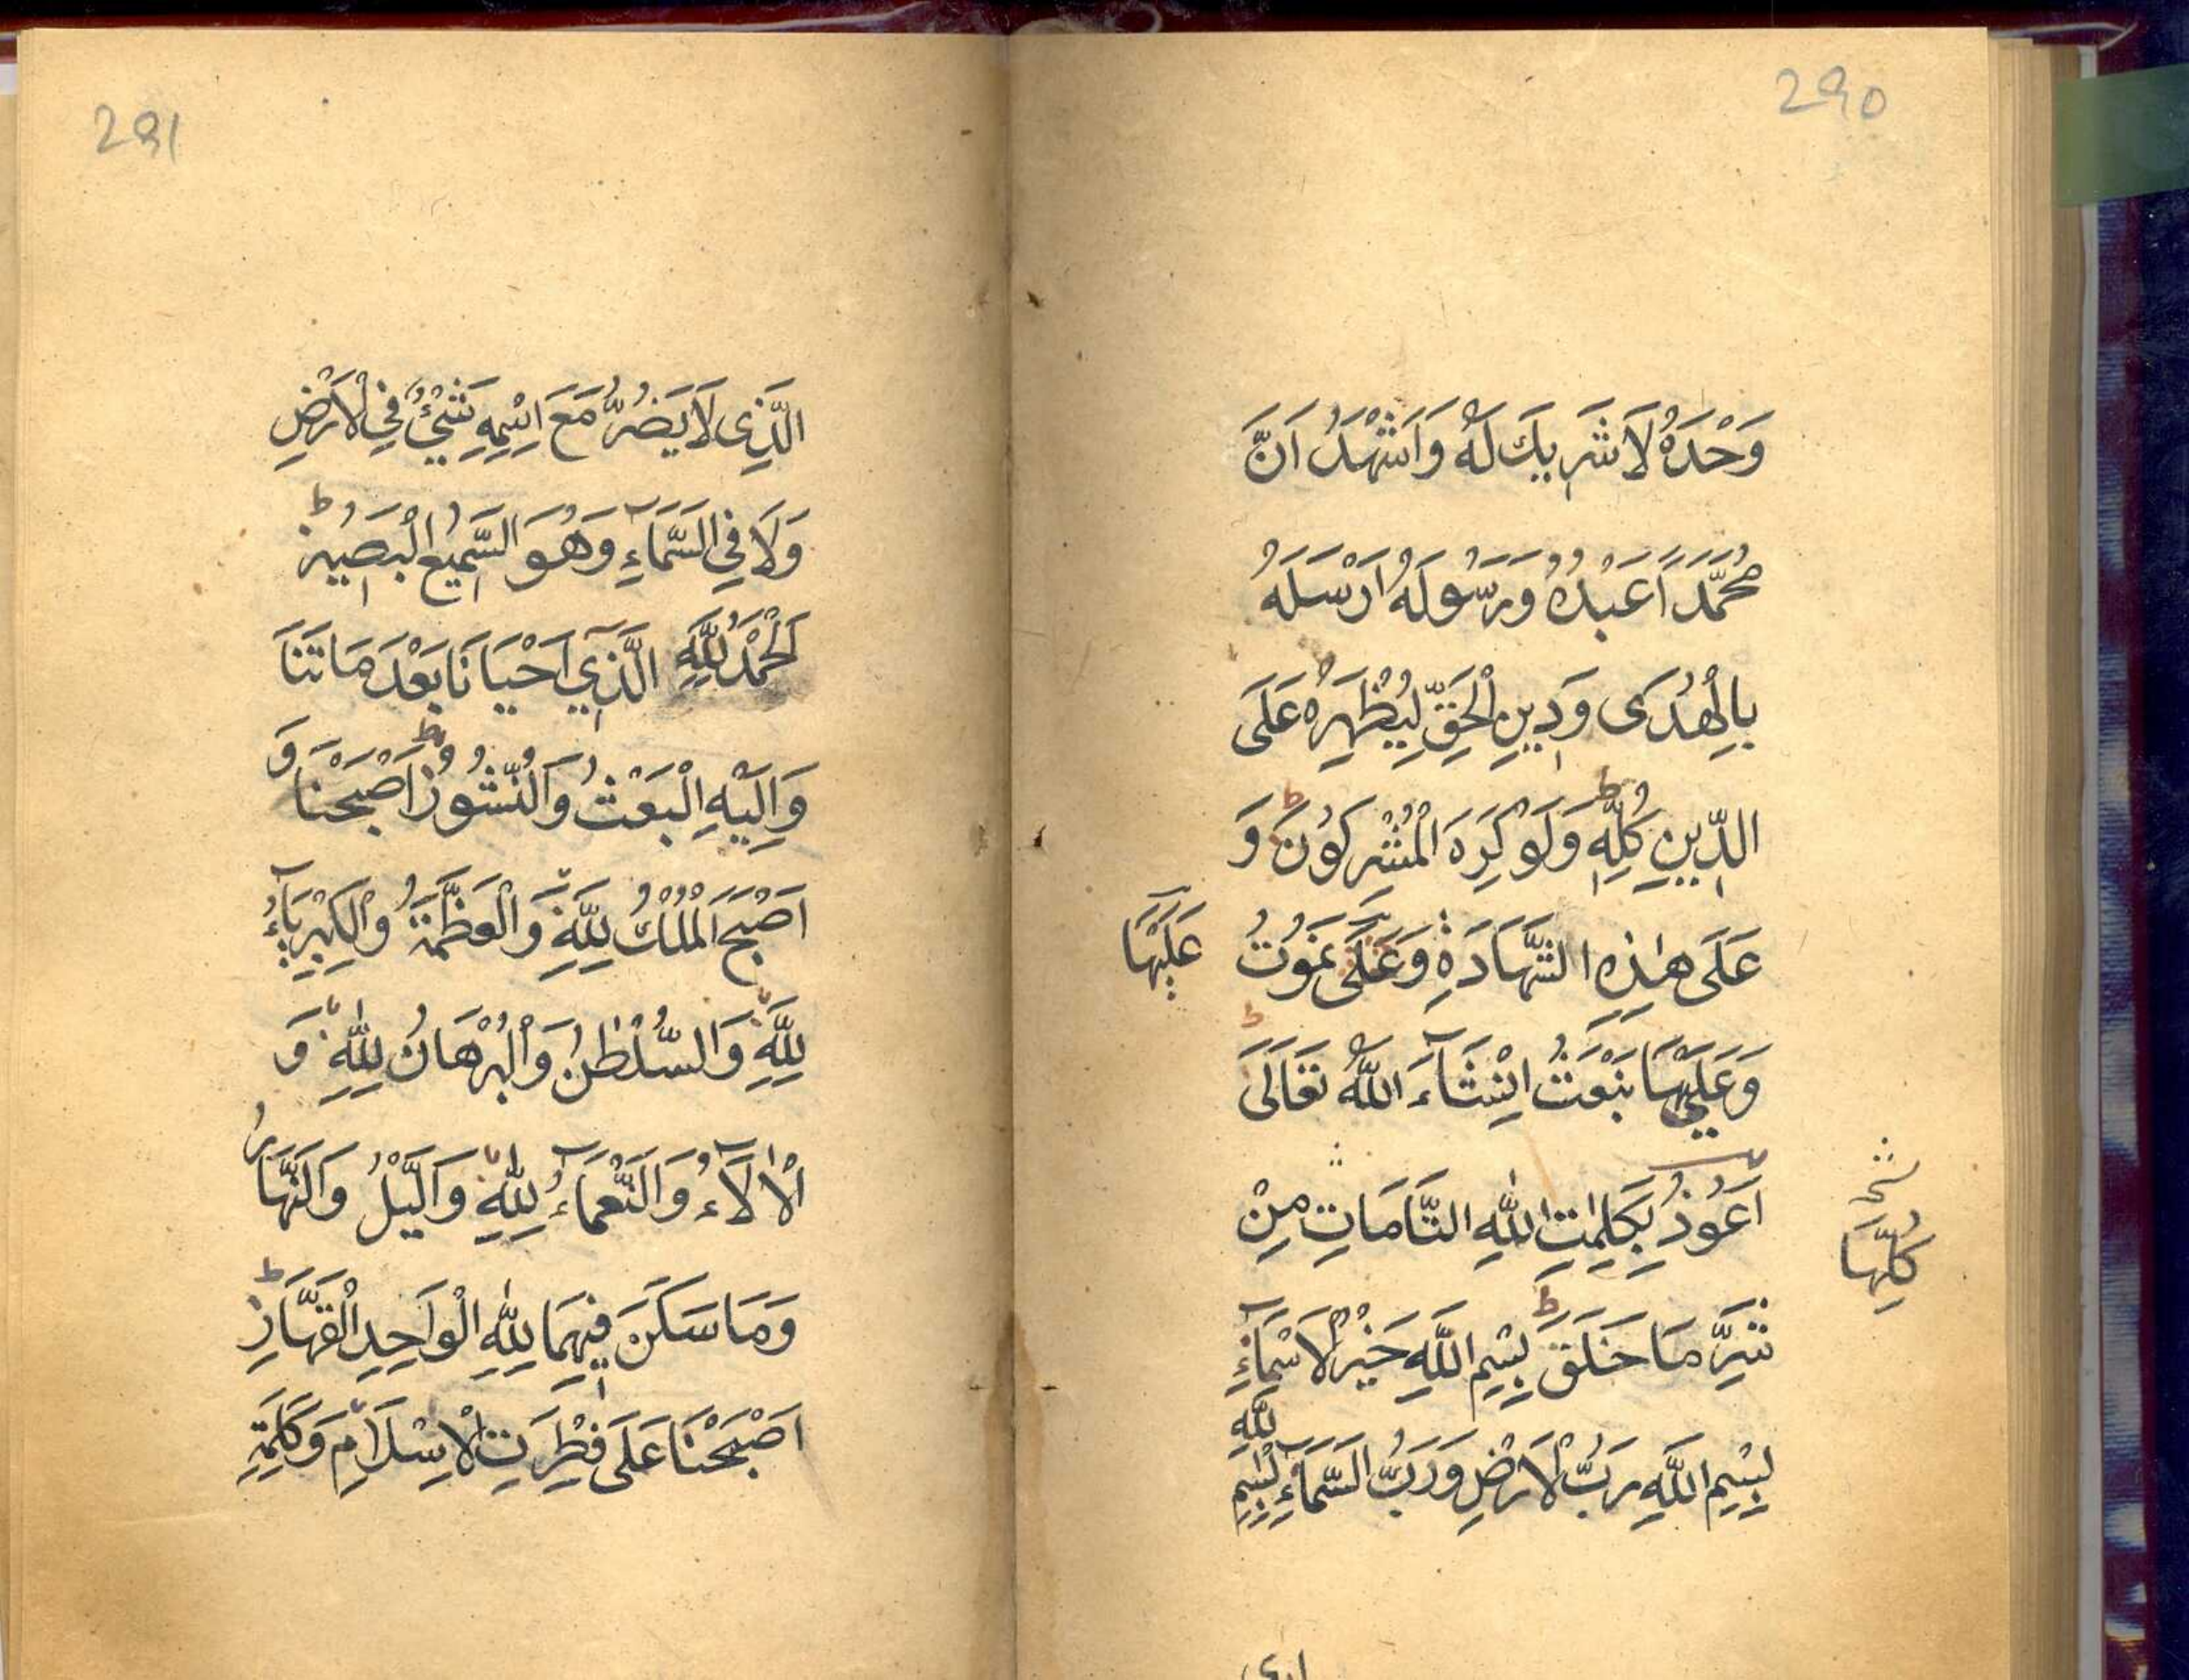 290
وَحْدَهُ لَا شَرِيكَ لَهُ وَاَشْهَدُ اَنَّ
مُحَمَّدًا عَبْدُهُ وَرَسُولُهُ اَرْسَلَهُ
بِالْهُدَى وَدِيْنِ الْحَقِّ لِيُظْهِرَهُ عَلَى
الدِّيْنِ كُلِّهٖ ط وَلَوْ كَرِهَ الْمُشْرِكُوْنَ ط وَ
عَلَى هٰذِهِ الشَّهَادَةِ وَعَلَى نَمُوْتُ
عَلَيْهَا
وَعَلَيْهَا نَبْعَثُ اِنْشَآءَ اللّٰهُ تَعَالَى ط
اَعُوْذُ بِكَلِمٰتِ اللّٰهِ التَّامَّاتِ مِنْ
كُلِّهَا
شَرِّ مَا خَلَقَ ط بِسْمِ اللّٰهِ خَيْرِ الْاَسْمَآءِ
بِسْمِ اللّٰهِ رَبِّ الْاَرْضِ وَرَبِّ السَّمَآءِ بِسْمِ
اللّٰهِ
291
الَّذِى لَا يَضُرُّ مَعَ اسْمِهِ شَيْءٌ فِي الْاَرْضِ
وَلَا فِي السَّمَآءِ وَهُوَ السَّمِيْعُ الْبَصِيْرُ ط
اَلْحَمْدُ لِلّٰهِ الَّذِيْ اَحْيَانَا بَعْدَ مَا تَنَا
وَاِلَيْهِ الْبَعْثُ وَالنُّشُوْرُ ط اَصْبَحْنَا وَ
اَصْبَحَ الْمُلْكُ لِلّٰهِ وَالْعَظَمَةُ وَالْكِبْرِيَآءُ
لِلّٰهِ وَالسُّلْطٰنُ وَالْبُرْهَانُ لِلّٰهِ وَ
الْاٰلَآءُ وَالنَّعْمَآءُ لِلّٰهِ وَالَّيْلُ وَالنَّهَارُ
وَمَا سَكَنَ فِيْهِمَا لِلّٰهِ الْوَاحِدِ الْقَهَّارِ ط
اَصْبَحْنَا عَلَى فِطْرَتِ الْاِسْلَامِ وَكَلِمَةِ